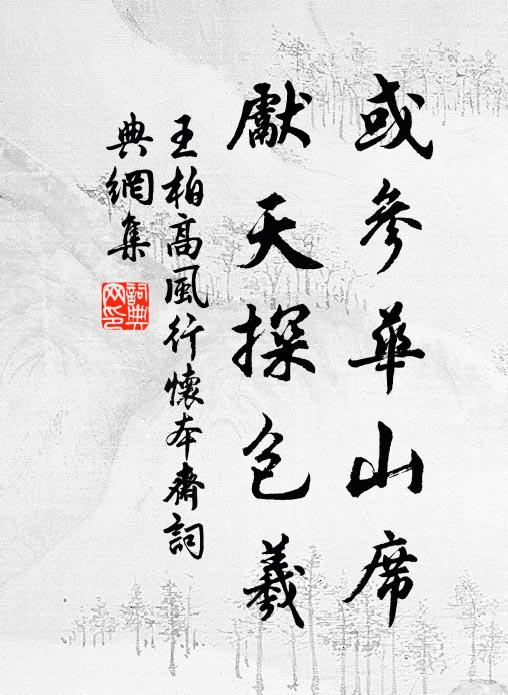 或參華山席
獻天探包羲
王柏高風行懷本齋詞
典網集
詞典網印